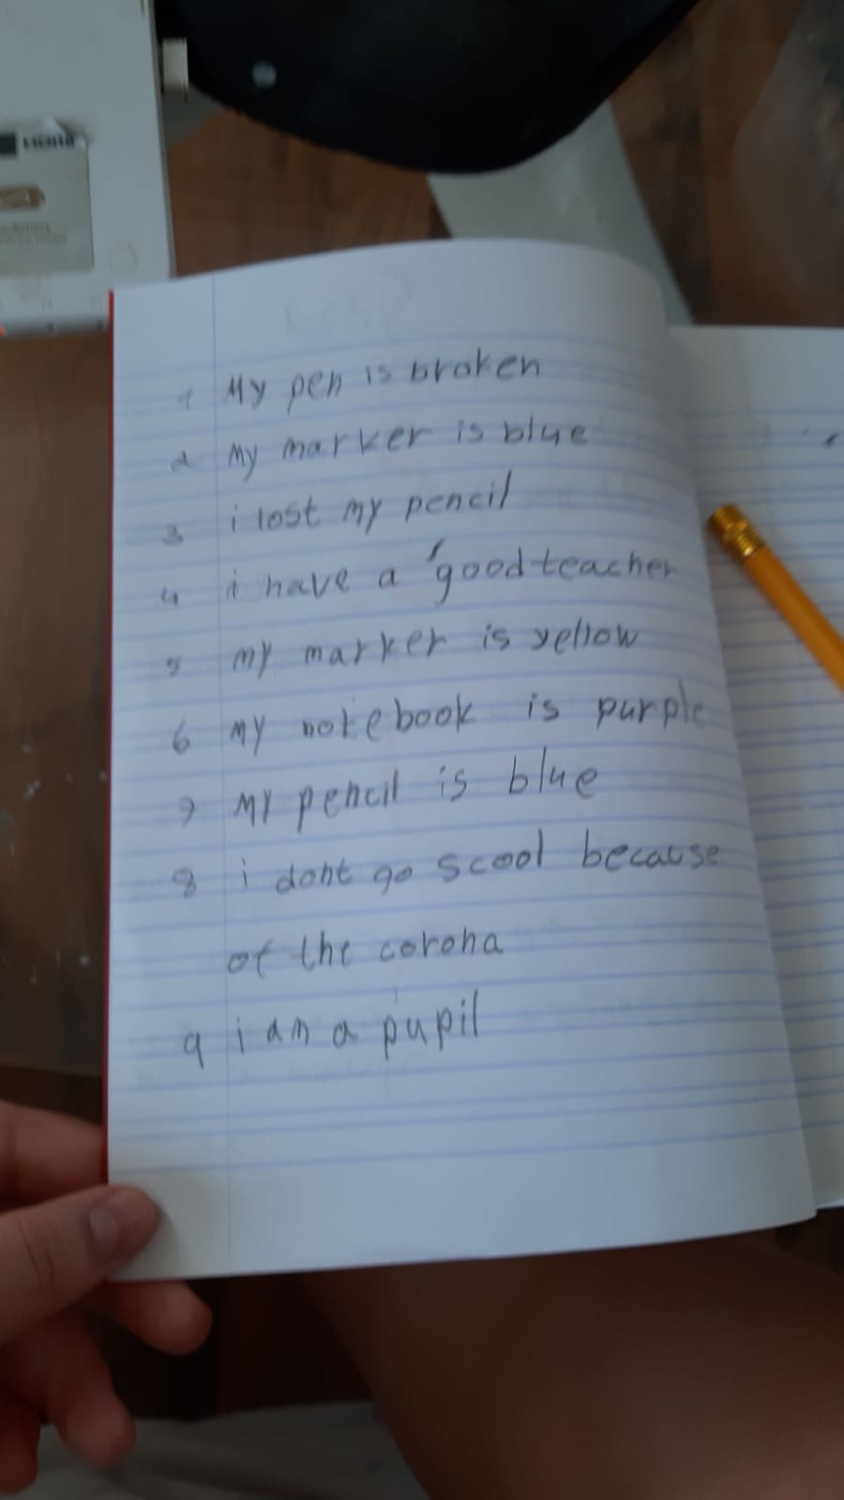 1 My pen is broken
2 My marker is blue
3 i lost my pencil
4 i have a good teacher
5 my marker is yellow
6 my notebook is purple
7 My pencil is blue
8 i dont go scool because
of the corona
9 i am a pupil